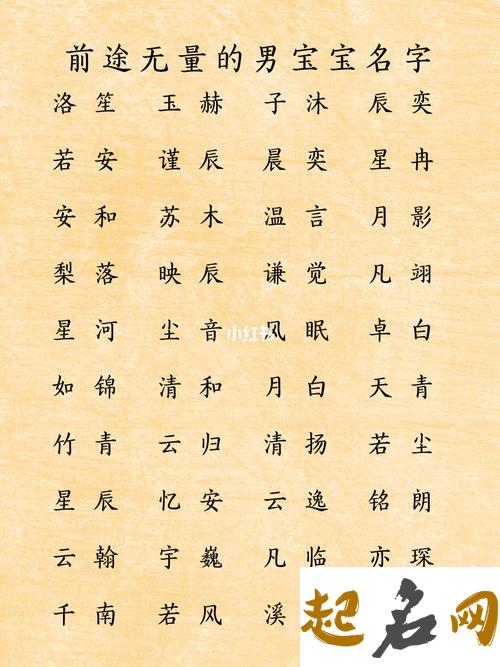 前途无量的男宝宝名字
洛笙 玉赫 子沐 辰奕
若安 谨辰 晨奕 星冉
安和 苏木 温言 月影
梨落 映辰 谦觉 凡翊
星河 尘音 风眠 卓白
小红书
如锦 清和 月白 天青
竹青 云归 清扬 若尘
星辰 忆安 云逸 铭朗
云翰 宇巍 凡临 亦琛
千南 若风 溪
起名网